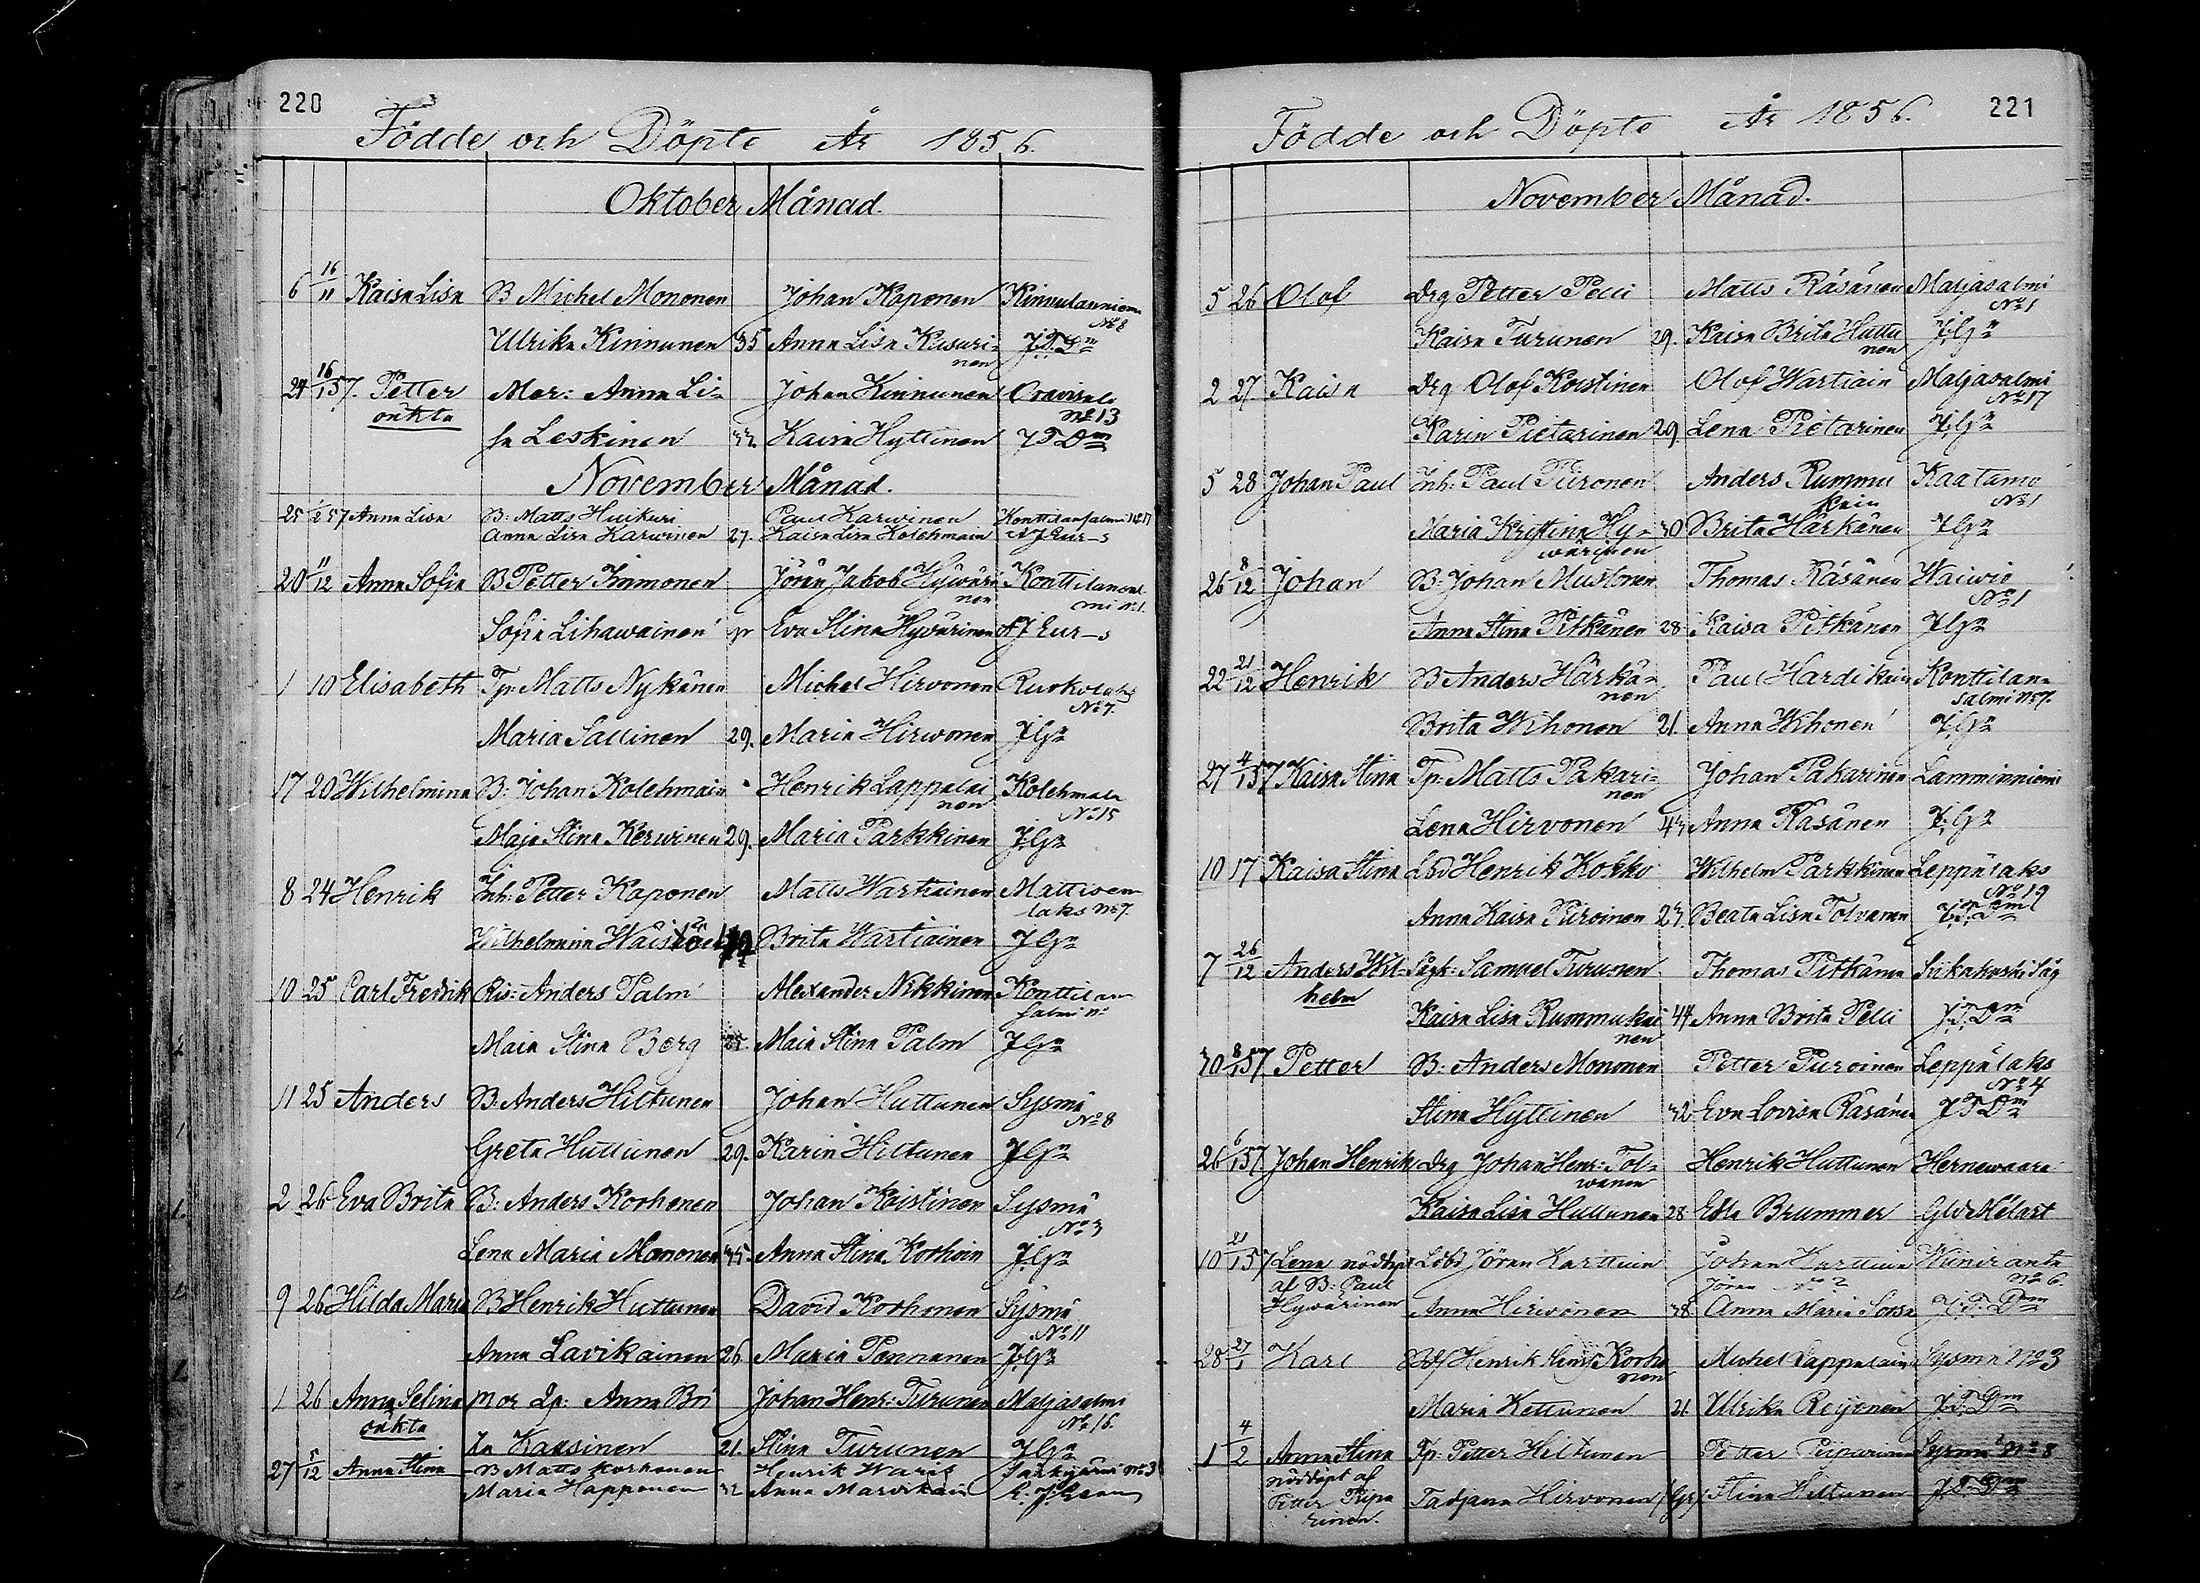 220
Födde och Döpte År 1856.
Oktober Månad.
6 16/11 Kaisa Lisa B Michel Mononen Johan Kaponen Kinnulanniemi
No 8
Ulrika Kinnunen 35 Anna Lisa Kasuri-
nen
24 16/1 57. Petter Mor: Anna Li- Johan Kinnunen Oravisalo
oäkta No 13
sa Leskinen 32. Kaisa Hyttinen
November Månad.
25 57 Anna Lisa B: Matts Huikuri Paul Karvinen Konttilansalmi No 17
Anna Lisa Karvinen 27. Kaisa Lisa Kolehmain
20 11/12 Anna Sofia B Petter Immonen Jöran Jakob Hyväri- Konttilansal
nen mi No 1.
Sofia Lihawainen Eva Stina Hyvärinen
1 10 Elisabeth Tp. Matts Nykänen Michel Hirvonen Ruokolaks
No 7.
Maria Sallinen 29. Maria Hirwonen
17 20 Wilhelmina B: Johan Kolehmain Henrik Lappalai Kolehmala
nen No 15
Maja Stina Kerwinen 29. Maria Parkkinen
8 24 Henrik Inh: Petter Kaponen Matts Wartiainen Mattisen
laks No 7.
Wilhelmina Brita Wartiainen
10 25 Carl Fredrik Anders Palm Alexander Nikkinen Konttilan
salmi No
Maia Stina Berg Maia Stina Palm
11 25 Anders B: Anders Hiltunen Johan Huttunen Sysmä
No 8
Greta Huttunen 29. Karin Hiltunen
2 26 Eva Brita B: Anders Korhonen Johan Koistinen Sysmä
No 3
Lena Maria Mononen 35. Anna Stina Korhoin
9 26 Hilda Maria B Henrik Huttunen David Korhonen Sysmä
No 11
Anna Lavikainen 26. Maria Pennanen
1 26 Anna Selina Mor Anna Bri Johan Henr: Turunen Maljasalmi
oäkta No 16
ta Kaasinen 21. Stina Turunen
27 5/12 Anna Stina B Matts Korhonen Henrik No 3
Maria Happonen 32 Anna
221
Födde och Döpte År 1856.
November Månad.
5 26 Olof Drg Petter Pelli Matts Räsänen Maljasalmi
No 1
Kaisa Turunen 29. Kaisa Brita Huttu
nen
2 27. Kaisa Drg Olof Koistinen Olof Wartiain Maljasalmi
No 17
Karin Pietarinen 29 Lena Pietarinen
5 28 Johan Paul Inh: Paul Piironen Anders Rummu Kaatamo
kain No 1
Maria Kristina Hy- 30 Brita Härkänen
wärinen
26 8/12 Johan B: Johan Mustonen Thomas Räsänen Waiwio
No 1
Anna Stina Pitkänen 28. Kaisa Pitkänen
22 21/12 Henrik B Anders Härkä- Paul Hardikain Konttilan-
nen salmi No 7.
Brita Wihonen 21. Anna Wihonen
27 4/1 57 Kaisa Stina Tp. Matts Pakari- Johan Pakarinen Lamminniemi
nen
Lena Hirvonen 43 Anna Räsänen
10 17 Kaisa Stina Henrik Kokko Wilhelm Parkkinen Leppälaks
No 19
Anna Kaisa Piiroinen Beata Lisa Tolvanen
7 26/12 Anders Wil- Samuel Turunen Thomas Pitkänen Siikakoski Såg
helm
Kaisa Lisa Rummukai 44 Anna Brita Pelli
nen
30 8/1 57. Petter B: Anders Mononen Petter Puroinen Leppälaks
No 4
Stina Hyttinen 32 Eva Lovisa Räsänen
26 6/1 57. Johan Henrik Drg Johan Henr: Tol- Henrik Huttunen Hernewaara
wanen
Kaisa Lisa Huttunen 28 Edla Brummer
10 21/1 57 Lena nöddöpt Jöran Karttuin Johan Karttuin
af B: Paul Jöran No 6
Hyvärinen Anna Hirvonen 38 Anna Maria Sorsa
28 27/1 Karl Henrik Korho Michel Lappalain Sysmä No 3
nen
Maria Kettunen 21. Ulrika Reijonen
1 4/2 Anna Stina Tp. Petter Hiltunen Petter Sysmä No 8
nöddöpt af
Petter Piipa Tadjana Hirvonen Stina Hiltunen
rinen.